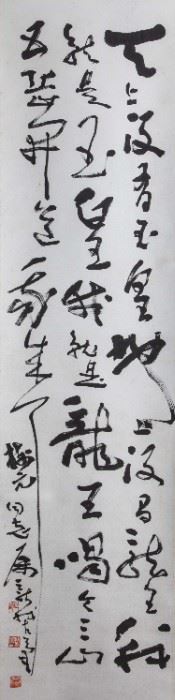 天上没有玉皇地上没有龍王我
就是玉皇我就是龍王喝令三山
五嶽開道我来了
同志属